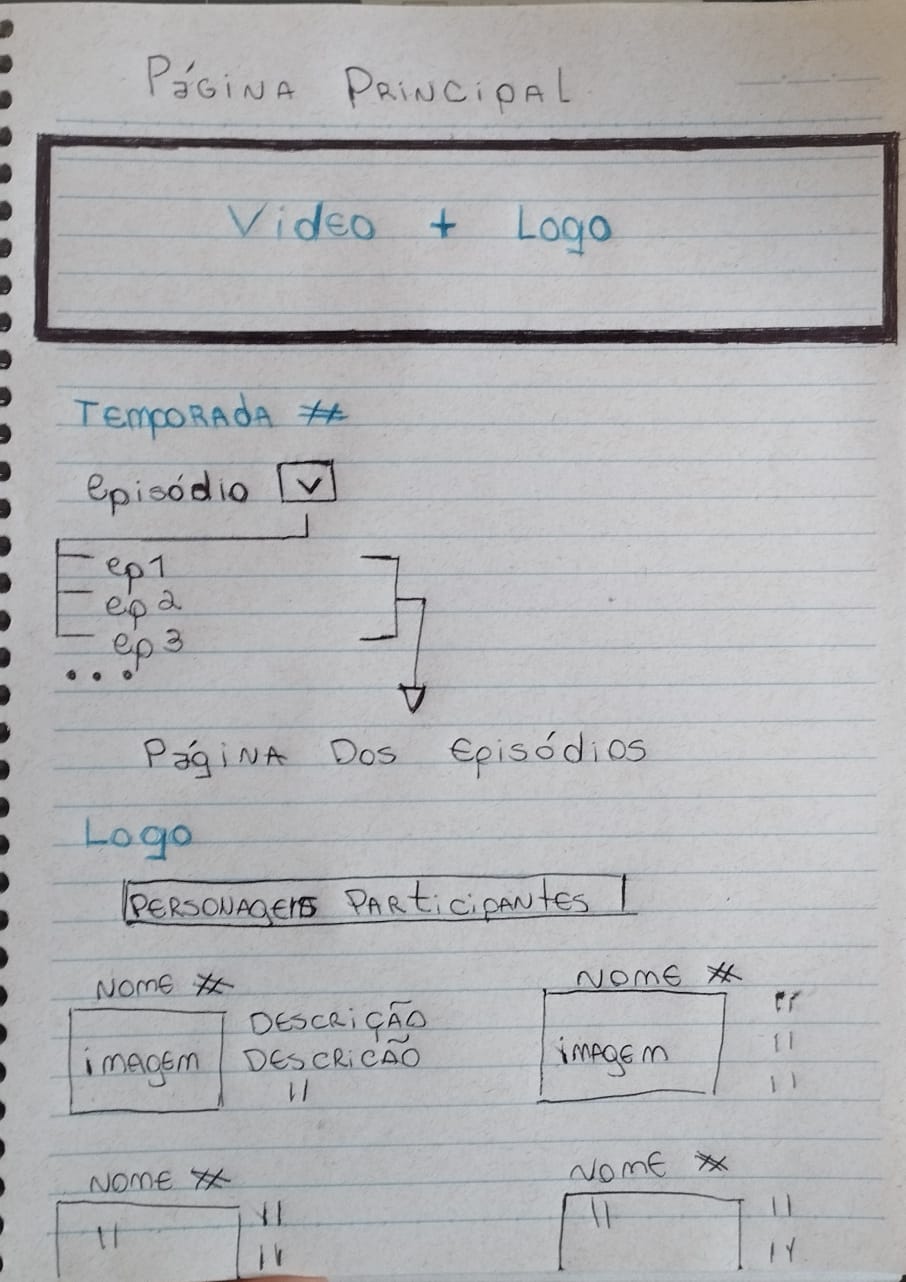 PáGiNA PRiNCipAL
Video + Logo
TEMPORADA #
episódio v
ep1
ep2
ep3
...
PágiNA Dos Episódios
Logo
PERSONAGENS PARticipANtES
NOME #
NOME #
DESCRiÇÃO
imAgEm
DESCRiCÃO
"
imAgEm
"
"
"
NOME #
NOME #
"
"
"
"
"
"